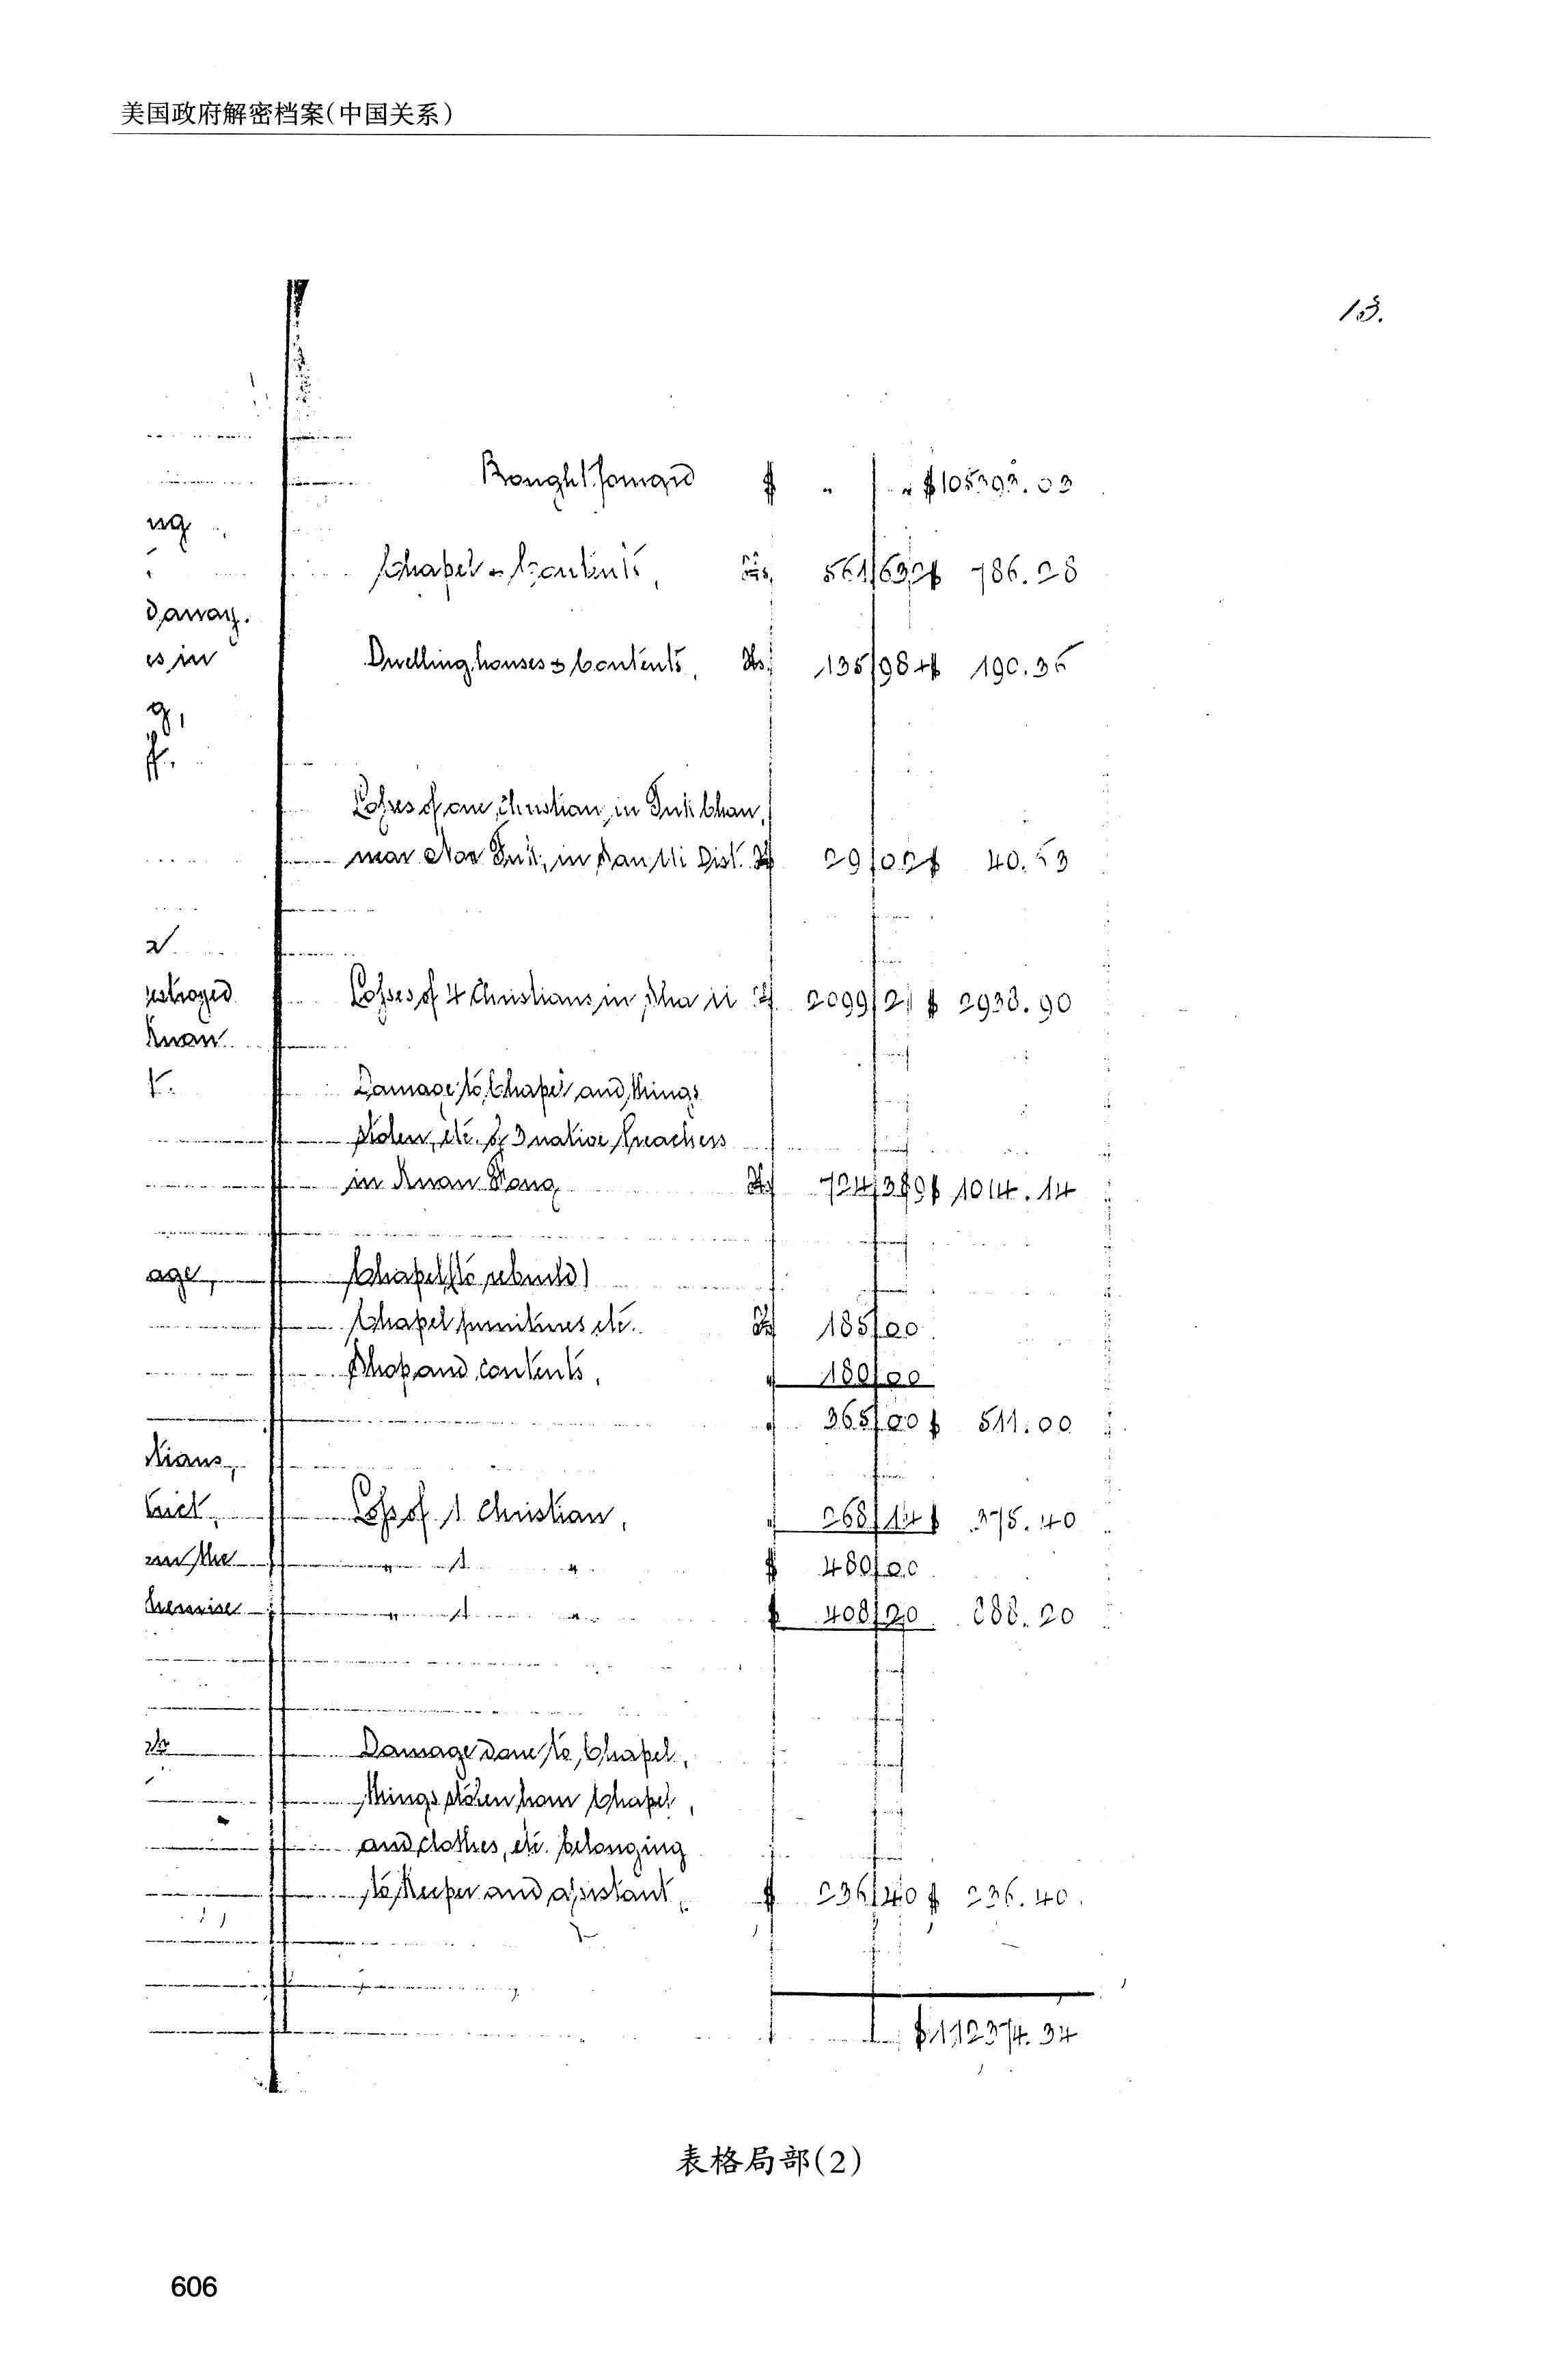 美国政府解密档案(中国关系)
13.
Brought forward $ " " $105393.03
ng
Chapel & Contents, Tls. 561/632 $ 786.28
away.
es in
Dwelling houses & Contents, Tls. 135/98 $ 190.36
g,
Losses of one Christian, in
near in Dist. Tls 29/02 $ 40.
Losses of 4 Christians in Tls 2099/21 $ 2938.90
estroyed
Kuan
Damage to Chapel and things
stolen, etc. of 3 native Preachers
in Kuan Tls 724/389 $ 1014.14
age, Chapel (to rebuild)
Chapel furnitures etc. Tls 185/00
Shop and contents, " 180/00
" 365/00 $ 511.00
stians,
trict, Loss of 1 Christian, " 268/14 $ 375.40
in the " 1 " $ 480/00
" 1 " $ 408/20 888.20
Damage done to Chapel,
things stolen from Chapel,
and clothes, etc. belonging
to Keeper and assistant, $ 236/40 $ 236.40.
$112374.34
表格局部(2)
606